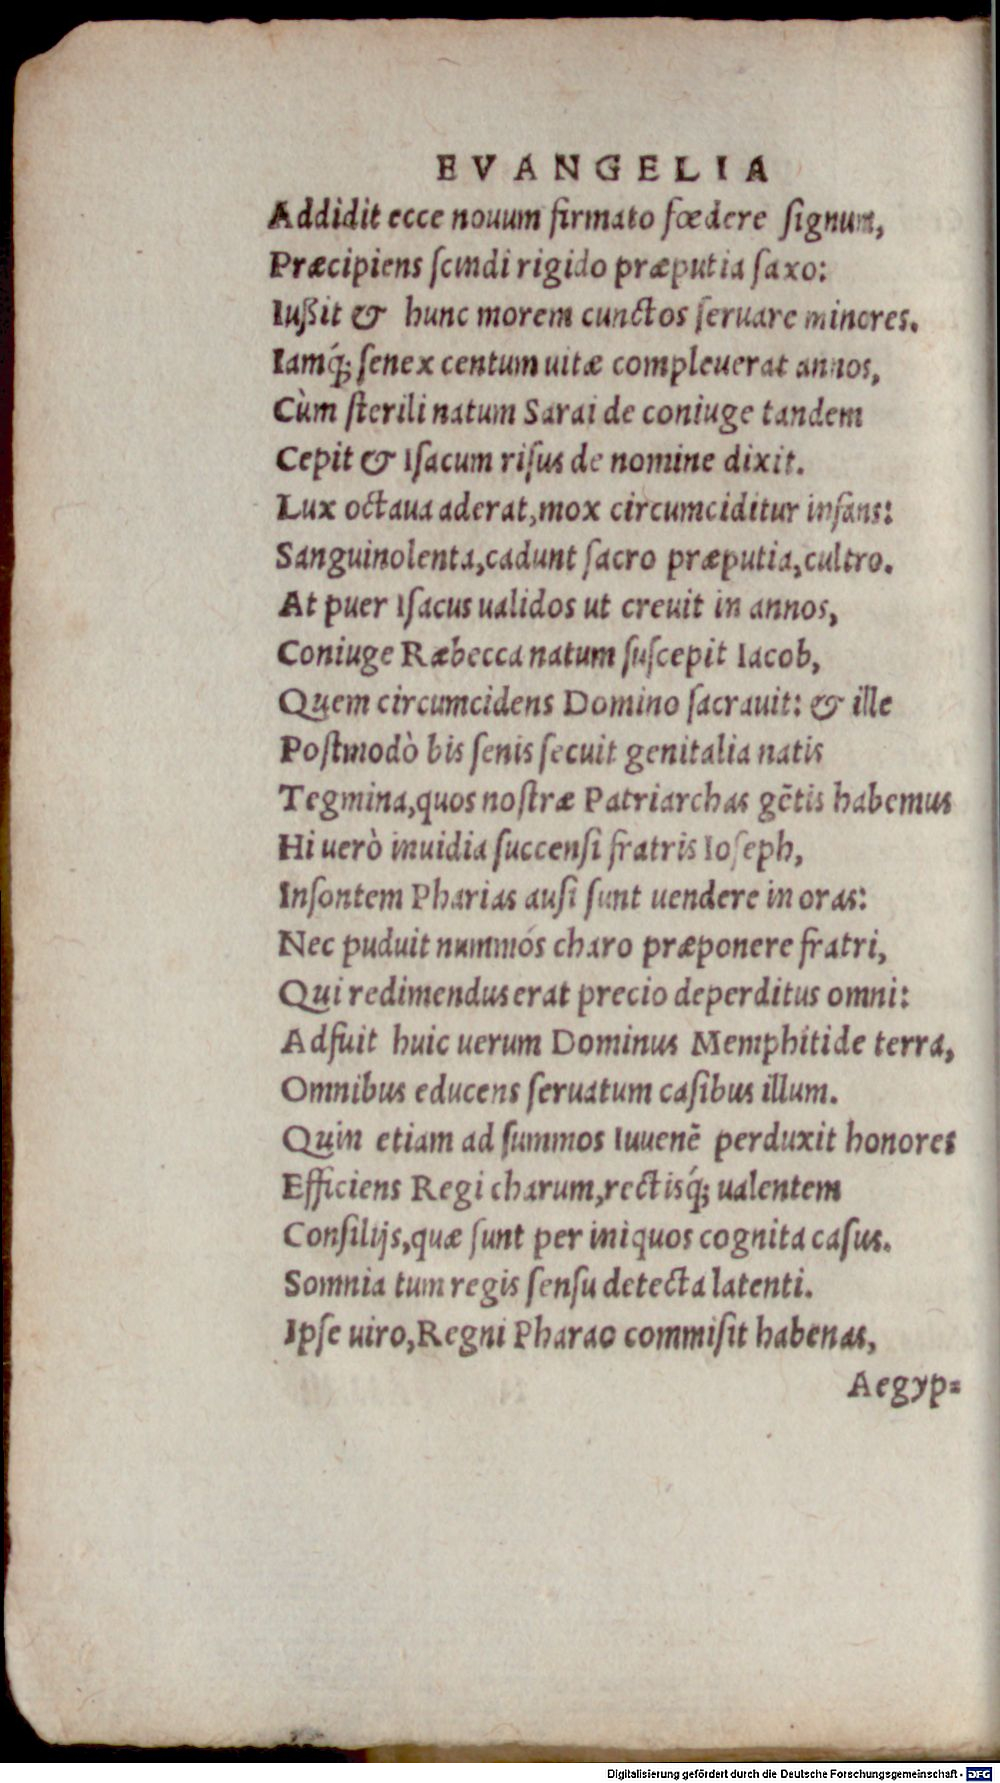 EVANGELIA
Addidit ecce nouum firmato fœdere ſignum,
Præcipiens ſcindi rigido præputia ſaxo:
Iuſsit & hunc morem cunctos ſeruare minores.
Iamq́; ſenex centum uitæ compleuerat annos,
Cùm ſterili natum Sarai de coniuge tandem
Cepit & Iſacum riſus de nomine dixit.
Lux octaua aderat, mox circumciditur infans:
Sanguinolenta, cadunt ſacro præputia, cultro.
At puer Iſacus ualidos ut creuit in annos,
Coniuge Ræbecca natum ſuſcepit Iacob,
Quem circumcidens Domino ſacrauit: & ille
Poſtmodò bis ſenis ſecuit genitalia natis
Tegmina, quos noſtræ Patriarchas gẽtis habemus
Hi uerò inuidia ſuccenſi fratris Ioſeph,
Inſontem Pharias auſi ſunt uendere in oras:
Nec puduit nummós charo præponere fratri,
Qui redimendus erat precio deperditus omni:
Adfuit huic uerum Dominus Memphitide terra,
Omnibus educens ſeruatum caſibus illum.
Quin etiam ad ſummos Iuuenẽ perduxit honores
Efficiens Regi charum, rectisq́; ualentem
Conſilijs, quæ ſunt per iniquos cognita caſus.
Somnia tum regis ſenſu detecta latenti.
Ipſe uiro, Regni Pharao commiſit habenas,
Aegyp=
Digitalisierung gefördert durch die Deutsche Forschungsgemeinschaft - DFG